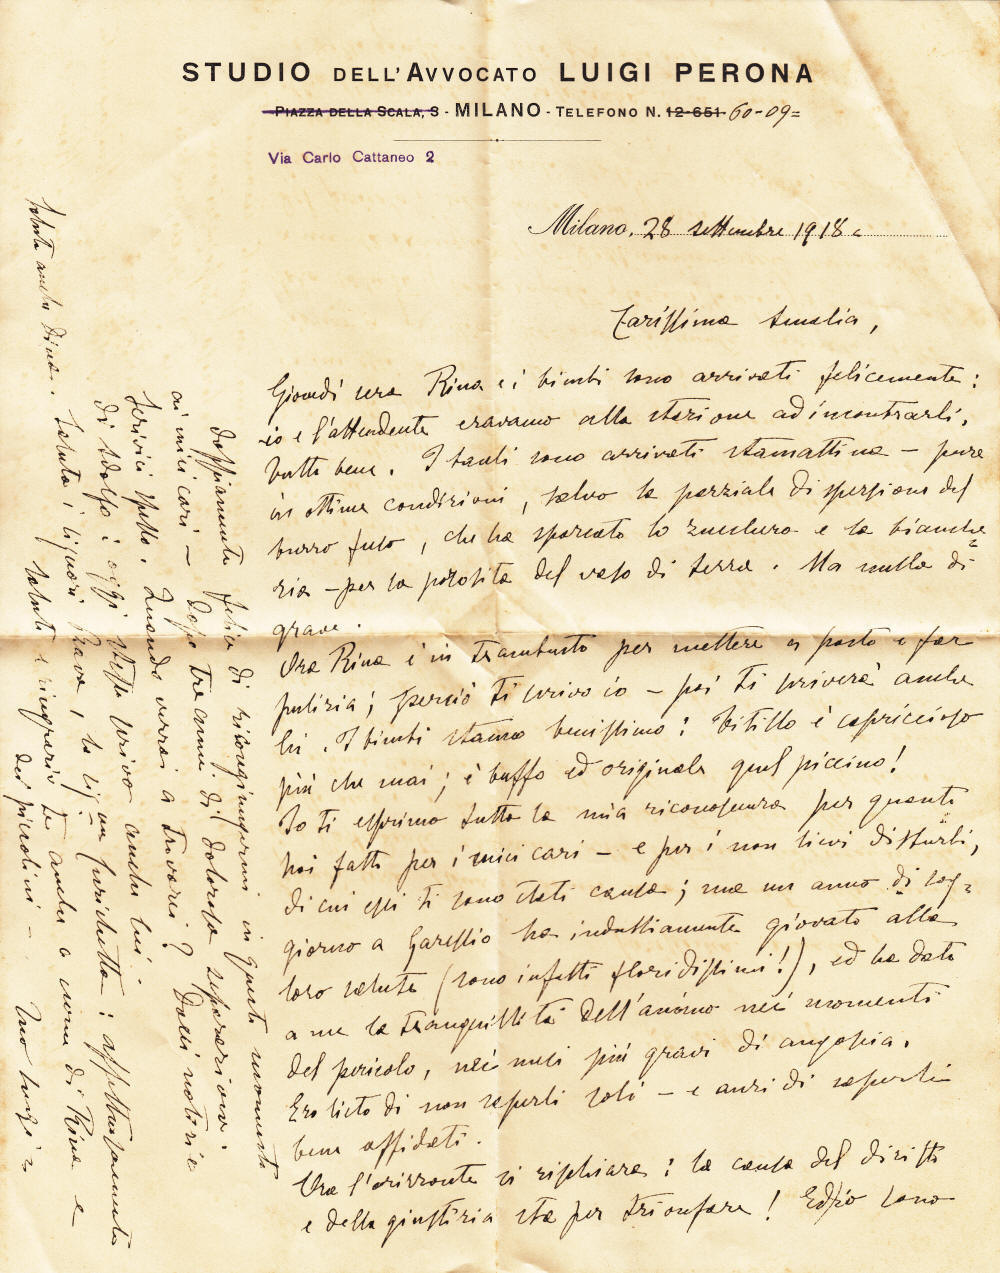 STUDIO DELL'AVVOCATO LUIGI PERONA
PIAZZA DELLA SCALA, 3 - MILANO - TELEFONO N. 12-651 - 60-09=
Via Carlo Cattaneo 2
Milano, 28 settembre 1918 =
Carissima Amalia,
Giovedì sera Rina e i bimbi sono arrivati felicemente:
io e l'attendente eravamo alla stazione ad incontrarli.
Tutto bene. I bauli sono arrivati stamattina – pure
in ottime condizioni, salvo la parziale dispersione del
burro fuso, che ha sporcato lo zucchero e la bianche=
ria – per la porosità del vaso di terra. Ma nulla di
grave.
Ora Rina è in trambusto per mettere a posto e far
pulizia; perciò ti scrivo io – poi ti scriverà anche
lei. I bimbi stanno benissimo: Titillo è capriccioso
più che mai; è buffo ed originale quel piccino!
Io ti esprimo tutta la mia riconoscenza per quanto
hai fatto per i miei cari – e per i non lievi disturbi,
di cui essi ti sono stati causa; ma un anno di sog=
giorno a Garessio ha indubbiamente giovato alla
loro salute (sono infatti floridissimi!), ed ha dato
a me la tranquillità dell'animo nei momenti
del pericolo, nei mesi più gravi di angoscia.
Ero lieto di non saperli soli – e anzi di saperli
bene affidati.
Ora l'orizzonte si rischiara: la causa del diritto
e della giustizia sta per trionfare! Ed io sono
doppiamente felice di ricongiungermi in questo momento
ai miei cari – dopo tre anni di dolorosa separazione.
Scrivici spesso. Quando verrai a trovarci? Dacci notizie
di Adolfo: oggi stesso scrivo anche lui.
Saluta i signori Bava, la sig.na Enrichetta: affettuosamente
saluta anche Dina. Saluti e ringrazio te anche a nome di Rina e
dei piccolini – Tuo Luigi =